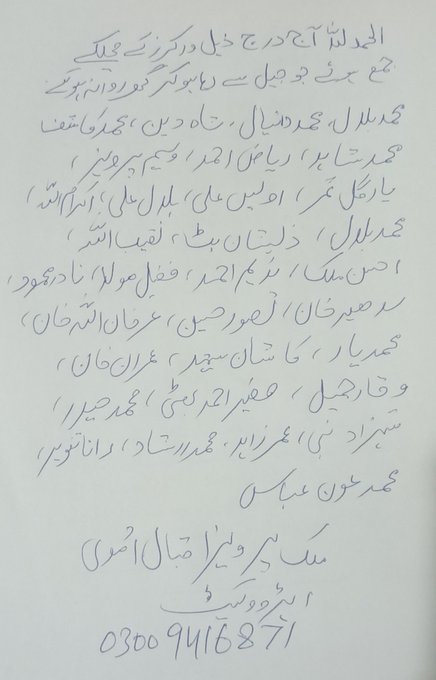 الحمدللہ آج درج ذیل ورکرز کے مچلکے
جمع ہوئے جو جیل سے رہا ہو کر گھر روانہ ہو گئے
محمد بلال، محمد دانیال، شاہ دین، محمد کاشف
محمد شاہد، ریاض احمد، وسیم پرویز،
یار گل عمر، اویس علی، بلال علی، اکرام اللہ،
محمد بلال، ذیشان بٹ، نقیب اللہ،
احسن ملک، ندیم احمد، فضل مولا، نادر محمود،
سدھیر خان، تصور حسین، عرفان اللہ خان،
محمد یار، کاشان سعید، عمران خان،
وقار جمیل، صغیر احمد بھٹی، محمد حیدر،
شہزاد نبی، عمر زاہد، محمد ارشاد، رانا تنویر،
محمد عون عباس
ملک پرویز اقبال اموی
ایڈووکیٹ
03009416871